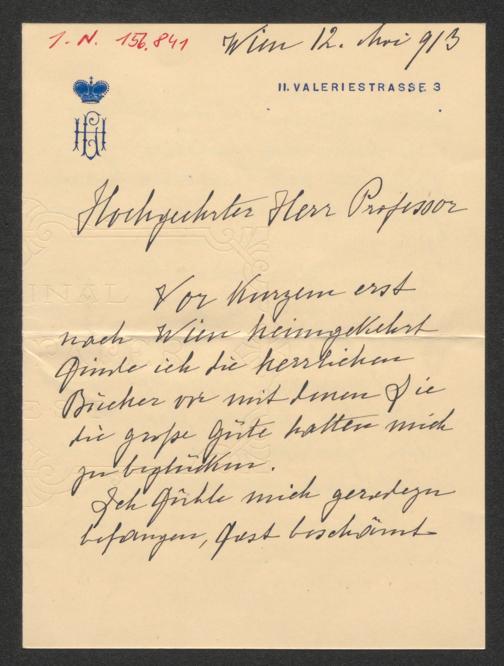 I. N. 156.841
Wien 12. Mai 913
II. VALERIESTRASSE 3
Hochgeehrter Herr Professor
Vor Kurzem erst
nach Wien heimgekehrt
finde ich die herrlichen
Bücher vor mit denen Sie
die große Güte hatten mich
zu beglücken.
Ich fühle mich geradezu
befangen, fast beschämt